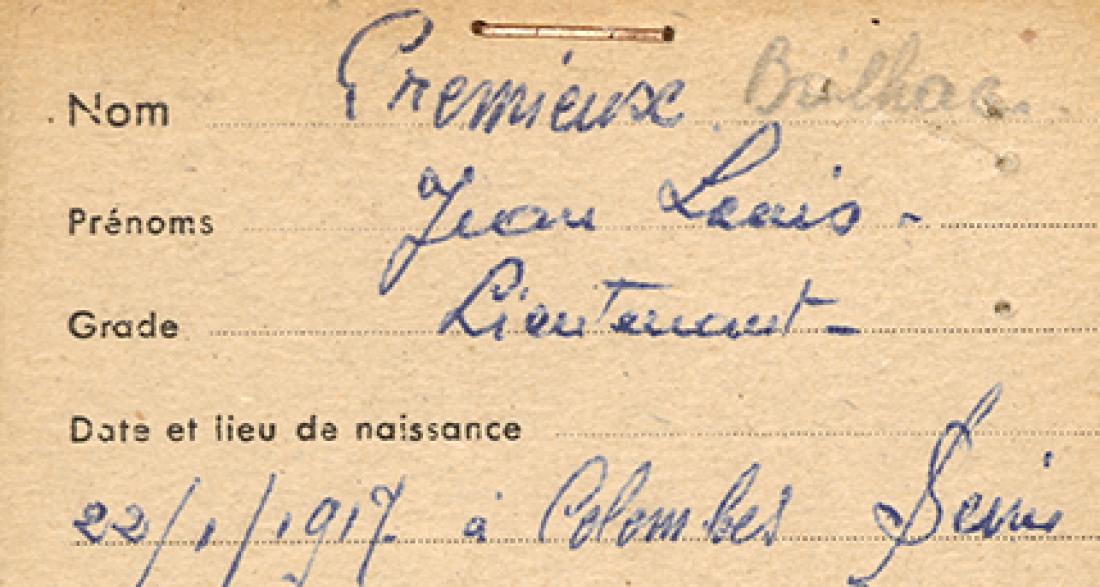 Nom Cremieux Brilhac.
Prénoms Jean Louis -
Grade Lieutenant -
Date et lieu de naissance
22/1/1917 à Colombes Seine